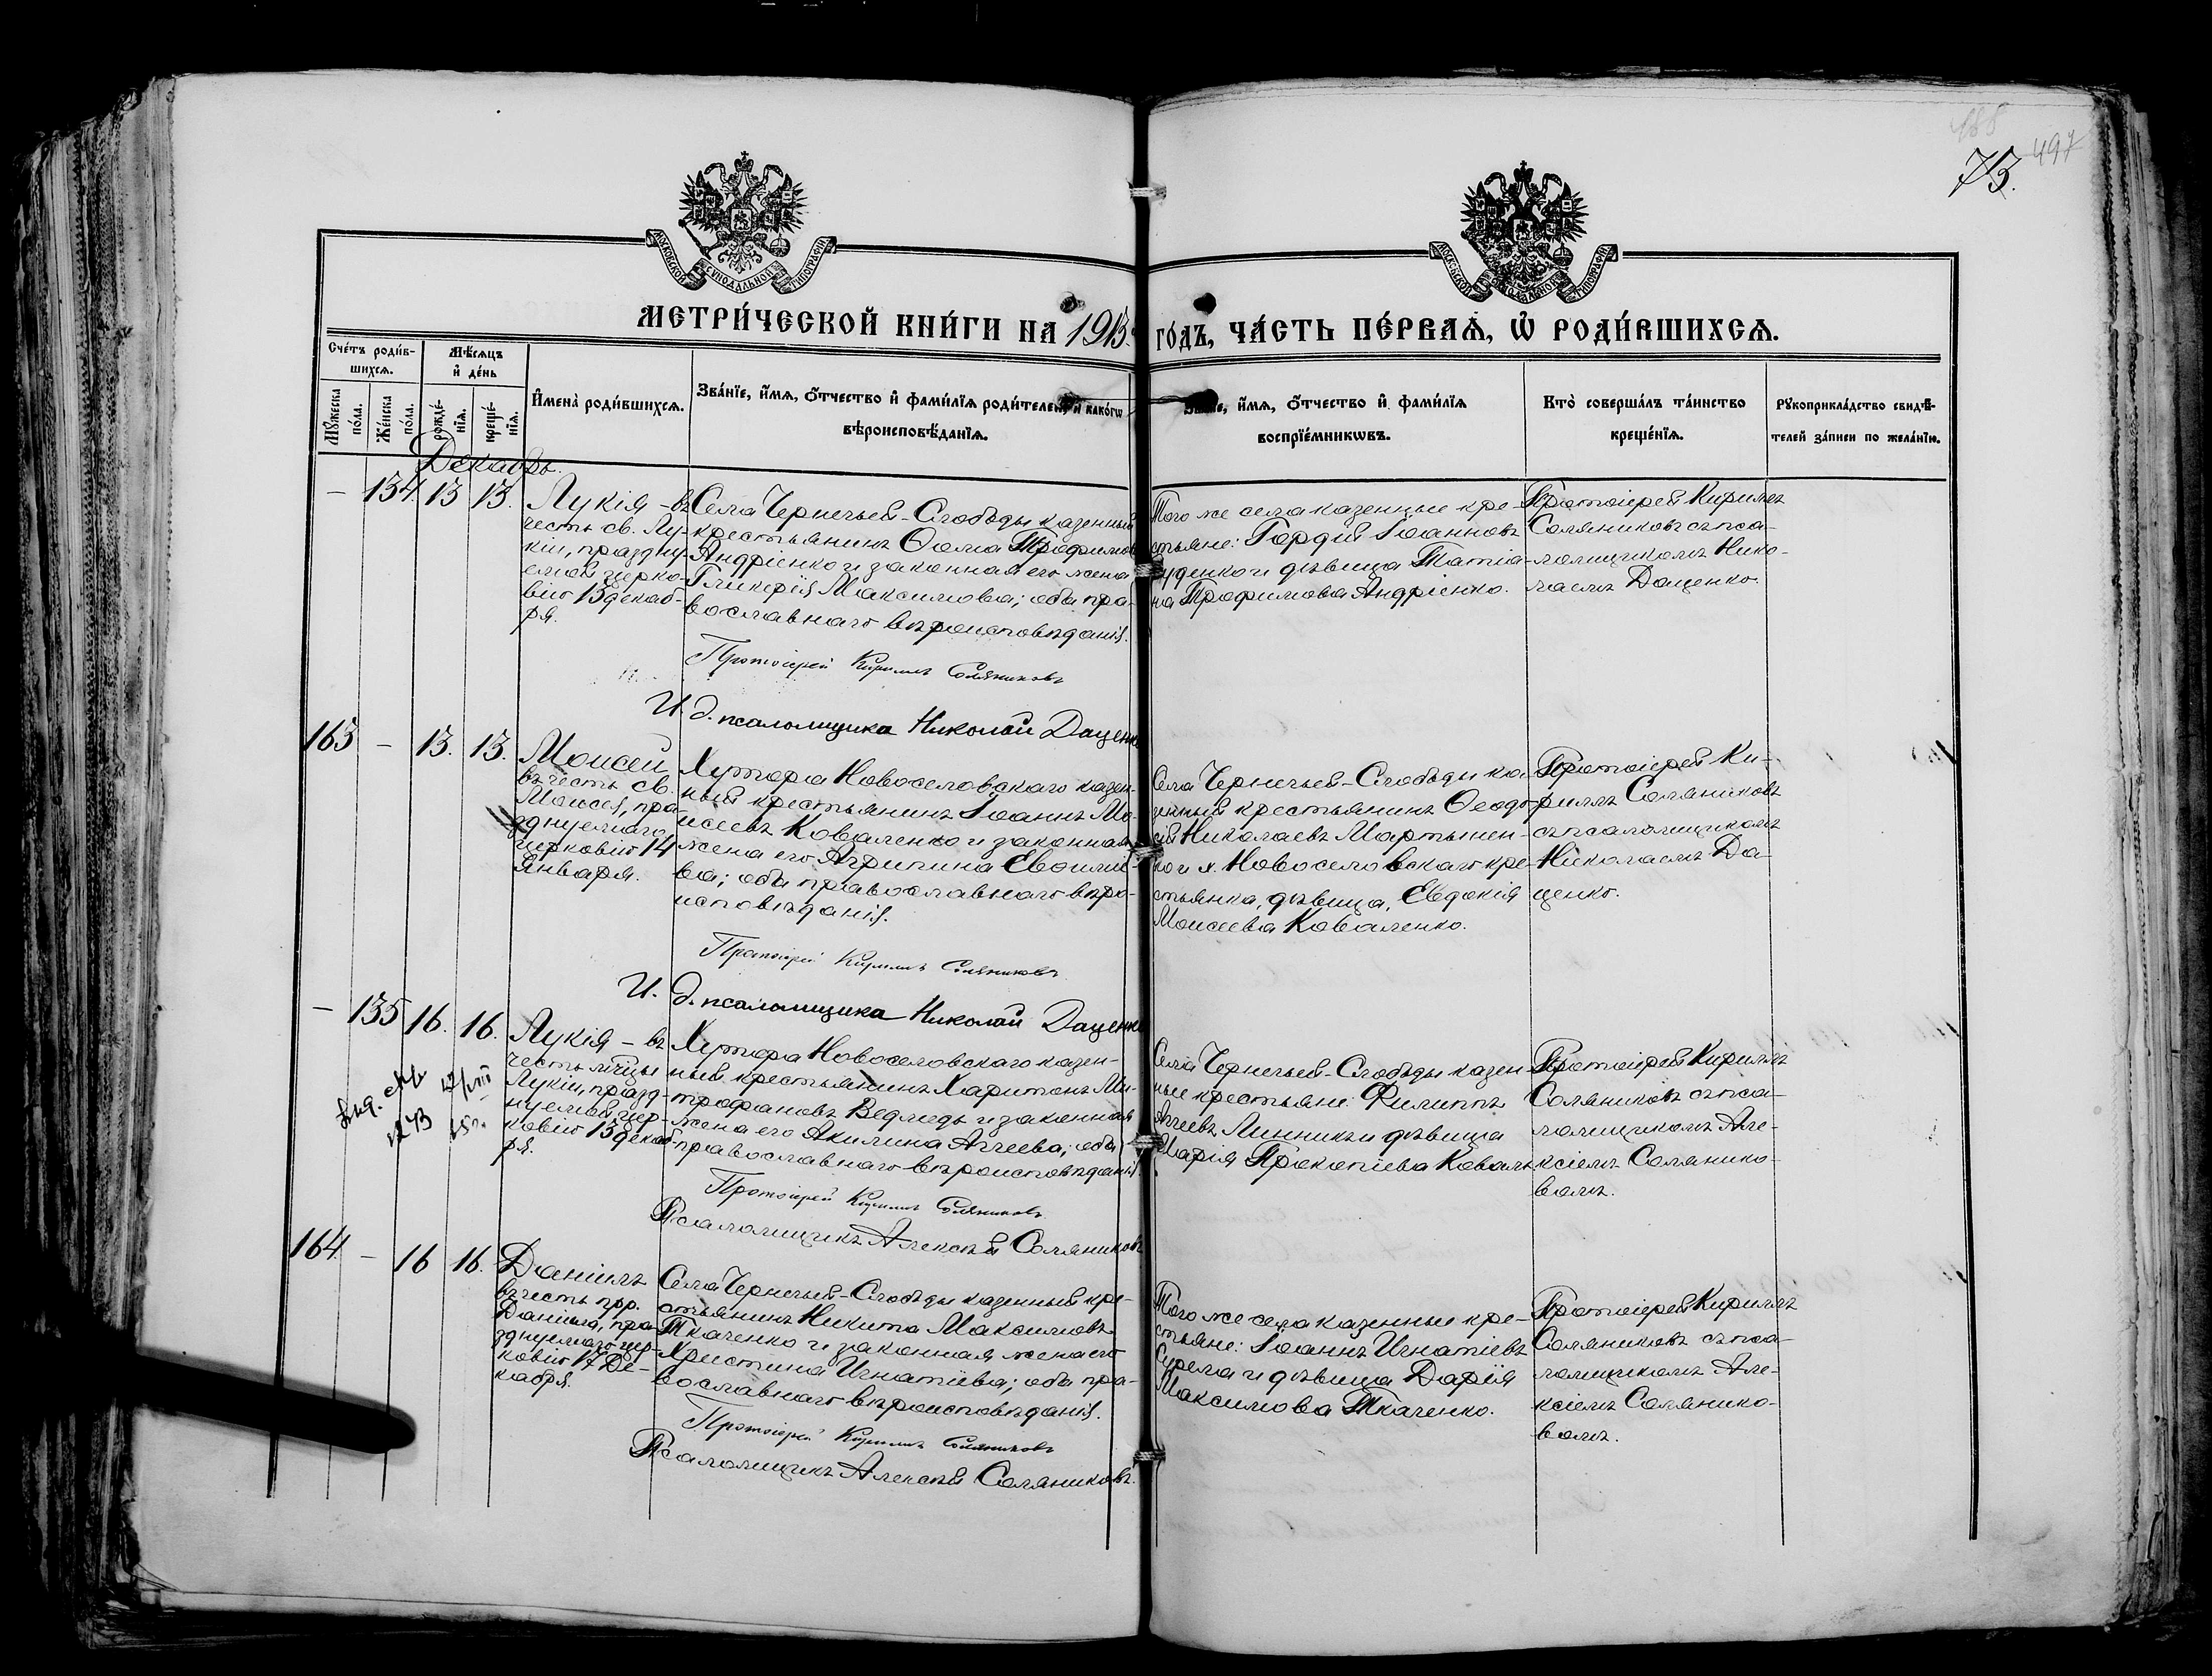 488
497
73.
МОСКОВСКОЙ СѴНОДАЛЬНОЙ ТИПОГРАФІИ
МОСКОВСКОЙ СѴНОДАЛЬНОЙ ТИПОГРАФІИ
МЕТРИ́ЧЕСКОЙ КНИ́ГИ НА 1913 ГО́ДЪ, ЧА́СТЬ ПЕ́РВАѦ, Ѡ҆ РОДИ́ВШИХСѦ.
Сче́тъ роди́в-
шихсѧ.
Мꙋ́жеска по́ла.
Же́нска по́ла.
Мѣ́сѧцъ
и҆ де́нь
рожде́-
нїѧ.
креще́-
нїѧ.
И҆мена̀ роди́вшихсѧ.
Зва́нїе, и҆́мѧ, ѻ҆́тчество и҆ фами́лїѧ роди́телей, и҆ како́гѡ
вѣроисповѣ́данїѧ.
Зва́нїе, и҆́мѧ, ѻ҆́тчество и҆ фами́лїѧ
воспрїе́мникѡвъ.
Кто̀ соверша́лъ та́инство
креще́нїѧ.
Рꙋкоприкла́дство свидѣ́-
телей за́писи по жела́нїю.
Декабрь.
– 134 13 13.
Лукія – въ
честь св. Лу-
кіи, праздну-
емой церко-
вію 13 декаб-
ря.
Села Чернечьей-Слободы казенный
крестьянинъ Ѳома Трофимовъ
Андріенко и законная его жена
Гликерія Максимова; оба пра-
вославнаго вѣроисповѣданія.
Протоіерей Кириллъ Соляниковъ
И. д. псаломщика Николай Даценко
Того же села казенные кре-
стьяне: Гордій Іоанновъ
Руденко и дѣвица Татіа-
на Трофимова Андріенко.
Протоіерей Кириллъ
Соляниковъ съ пса-
ломщикомъ Нико-
лаемъ Даценко.
163 – 13. 13.
Моисей
въ честь св.
Моисея, пра-
зднуемаго
церковію 14
Января.
Хутора Новоселовскаго казен-
ный крестьянинъ Іоаннъ Мо-
исеевъ Коваленко и законная
жена его Агрипина Евѳиміе-
ва; оба православнаго вѣро-
исповѣданія.
Протоіерей Кириллъ Соляниковъ
И. д. псаломщика Николай Даценко
Села Чернечьей-Слободы ка-
зенный крестьянинъ Ѳеодо-
сій Николаевъ Мартынен-
ко и х. Новоселовскаго кре-
стьянка, дѣвица, Евдокія
Моисеева Коваленко.
Протоіерей Ки-
риллъ Соляниковъ
съ псаломщикомъ
Николаемъ Да-
ценко.
– 135 16. 16.
Лукія – въ
честь мц҃цы
Лукіи, празд-
нуемой цер-
ковію 13 декаб-
ря.
Хутора Новоселовскаго казен-
ный крестьянинъ Харитонъ Ми-
трофановъ Ведмедь и законная
жена его Акилина Аггеева; оба
православнаго вѣроисповѣданія.
Протоіерей Кириллъ Соляниковъ
Псаломщикъ Алексѣй Соляниковъ
Села Чернечьей-Слободы казен-
ные крестьяне: Филиппъ
Аггеевъ Линникъ и дѣвица
Марія Прокопіева Коваль.
Протоіерей Кириллъ
Соляниковъ съ пса-
ломщикомъ Але-
ксіемъ Солянико-
вомъ.
164 – 16 16.
Даніилъ
въ честь прр.
Даніила, пра-
зднуемаго цер-
ковію 17 Де-
кабря.
Села Чернечьей-Слободы казенный кре-
стьянинъ Никита Максимовъ
Ткаченко и законная жена его
Христина Игнатіева; оба пра-
вославнаго вѣроисповѣданія.
Протоіерей Кириллъ Соляниковъ
Псаломщикъ Алексѣй Соляниковъ.
Того же села казенные кре-
стьяне: Іоаннъ Игнатіевъ
и дѣвица Дарія
Максимова Ткаченко.
Протоіерей Кириллъ
Соляниковъ съ пса-
ломщикомъ Але-
ксіемъ Солянико-
вомъ.